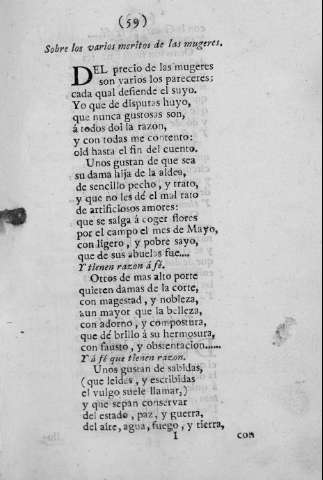 (59)
Sobre los varios meritos de las mugeres.
DEL precio de las mugeres
son varios los pareceres;
cada qual defiende el suyo.
Yo que de disputas huyo,
que nunca gustosas son,
á todos doi la razon,
y con todas me contento:
oid hasta el fin del cuento.
Unos gustan de que sea
su dama hija de la aldea,
de sencillo pecho, y trato,
y que no les dé el mal rato
de artificiosos amores:
que se salga á coger flores
por el campo el mes de Mayo,
con ligero, y pobre sayo,
que de sus abuelas fue....
Y tienen razon á fé.
Otros de mas alto porte
quieren damas de la corte,
con magestad, y nobleza,
aun mayor que la belleza,
con adorno, y compostura,
que dé brillo á su hermosura,
con fausto, y obstentacion......
Y á fé que tienen razon.
Unos gustan de sabidas,
(que leídas, y escribidas
el vulgo suele llamar,)
y que sepan conservar
del estado, paz, y guerra,
del aire, agua, fuego, y tierra,
I con